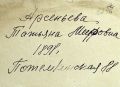 Арсеньева
Татьяна Марковна
1891.
Потемкинская 88